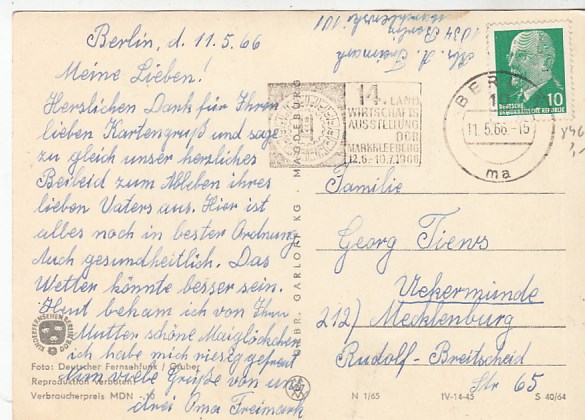 Berlin, d. 11.5.66
Meine Lieben!
Herzlichen Dank für Ihren
lieben Kartengruß und sage
zu gleich unser herzliches
Beileid zum Ableben ihres
lieben Vaters aus. Hier ist
alles noch in bester Ordnung
Auch gesundheitlich. Das
Wetter könnte besser sein.
Heut bekam ich von Ihrer
Mutter schöne Maiglöckchen
ich habe mich riesig gefreut
Nun viele Grüße von uns
drei Oma Freimark
Foto: Deutscher Fernsehfunk / Gruber
Reproduktion verboten!
Verbraucherpreis MDN -,10
KINDERFERNSEHEN BERLIN DDR
GEBR. GARLOFF KG · MAGDEBURG
A. Freimark
1034 Berlin
101
14. LAND
WIRTSCHAFTS
AUSSTELLUNG
DER
DDR
MARKKLEEBERG
12.6.-10.7.1966
BERLIN
11.5.66-15
ma
10
DEUTSCHE
DEMOKRATISCHE REPUBLIK
Familie
Georg Tiews
Uekermünde
212) Mecklenburg
Rudolf-Breitscheid
Str 65
N 1/65
IV-14-45
S 40/64